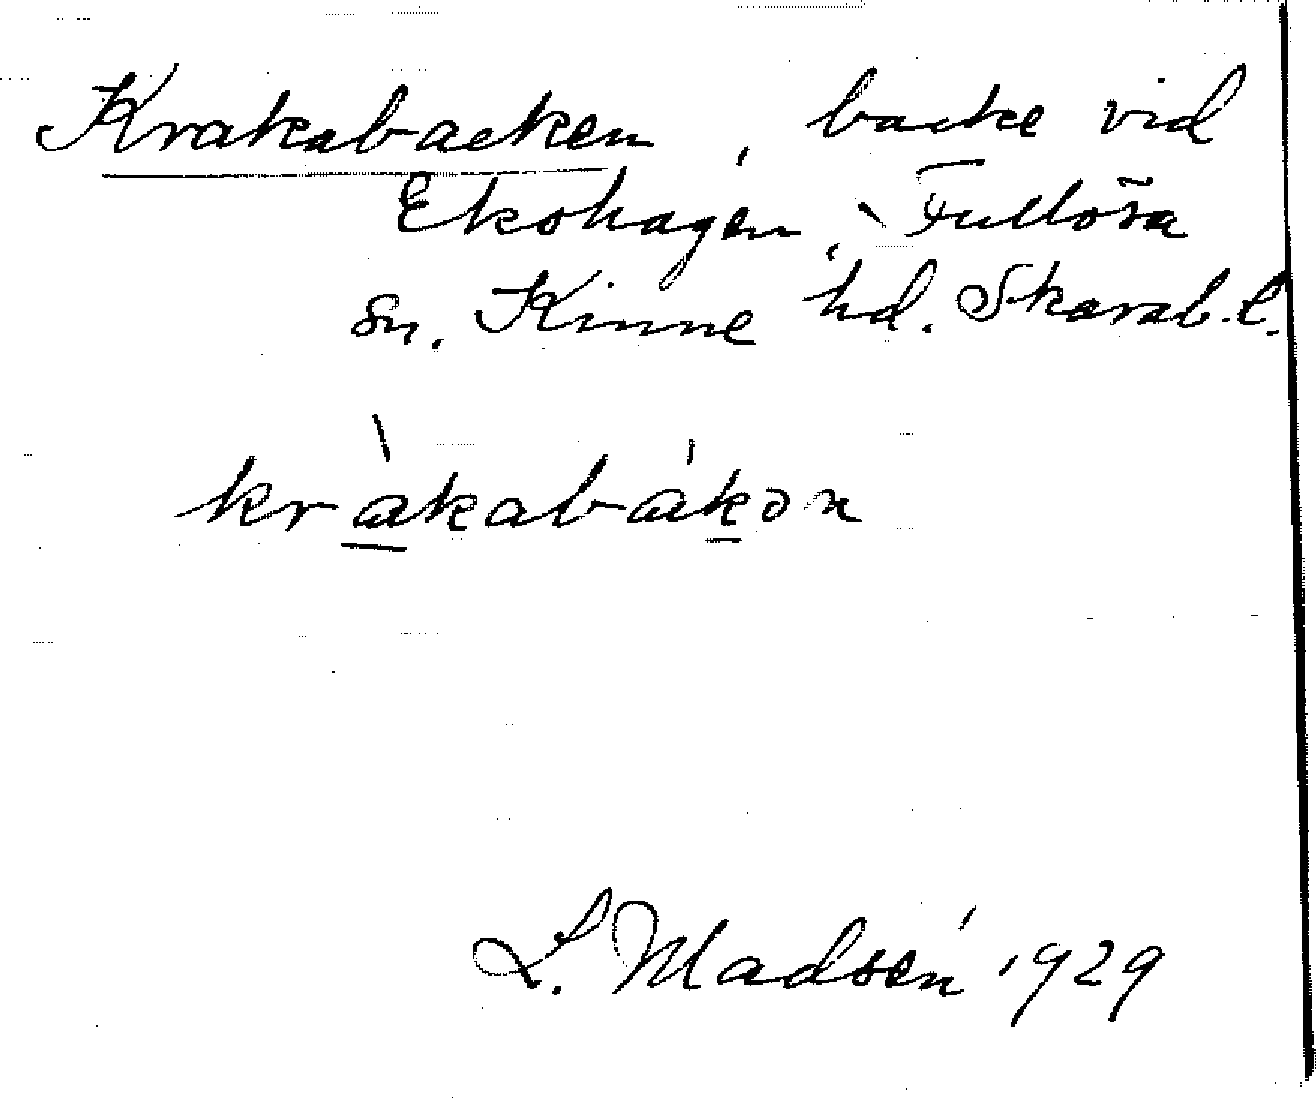 Krakabacken, backe vid
Ekohagen, Fullösa
sn. Kinne hd. Skarab. l.
kràkabákən
L. Madsén 1929